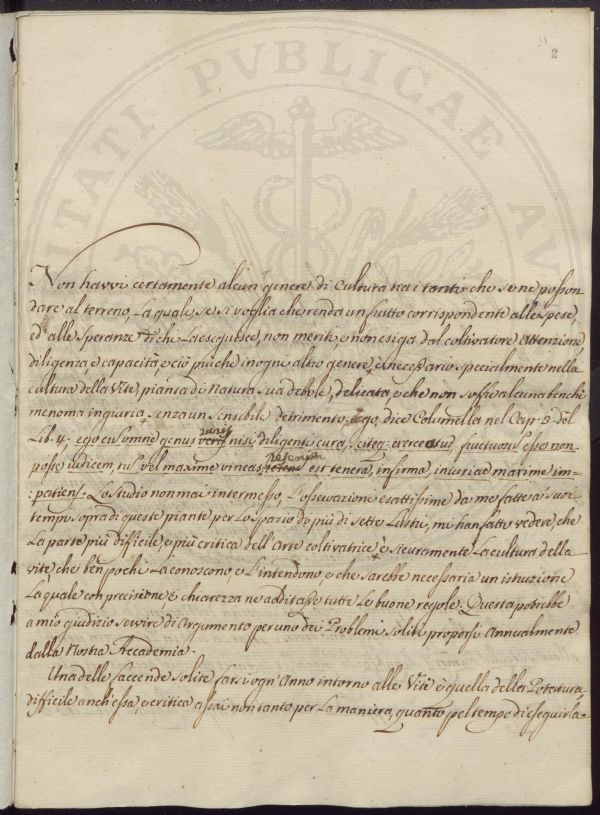 2
Non havvi certamente alcun genere di Cultura tra i tanti che se ne posson
dare al terreno, La quale se si voglia che renda un frutto corrispondente alle spese,
ed alle Speranze di chi La eseguisce, non meriti, e non esiga dal coltivatore attenzione,
diligenza, e capacità, e ciò più che in ogni altro genere, è necessario specialmente nella
cultura della Vite, pianta di Natura sua debole, delicata, e che non soffre alcuna benchè
menoma ingiuria senza un sensibile detrimento. ego, dice Columella nel Cap: 3. del
Lib. 4: ego cum omne genus nisi diligenti cura, exerceatur, fructuosum esse non
posse iudicem, tum vel maxime vineas est tenera, infirma, iniuriae maxime im-
:patiens. Lo studio non mai intermesso, L'osservazioni esattissime da me fatte a' suoi
tempi sopra di queste piante per Lo spazio di più di sette Lustri, mi han fatto vedere, che
La parte più difficile, e più critica dell'Arte coltivatrice è sicuramente La cultura della
vite, che ben pochi La conoscono, e L'intendono, e che sarebbe necessaria un istruzione
La quale con precisione, e chiarezza ne additasse tutte Le buone regole. Questa potrebbe
a mio giudizio servire di Argumento per uno dei Problemi soliti proporsi Annualmente
dalla Nostra Accademia.
Una delle faccende solite farsi ogn'Anno intorno alle Viti è quella della Potatura,
difficile anch'essa, e critica assai non tanto per La maniera, quanto pel tempo di eseguirla.
PVBLICAE